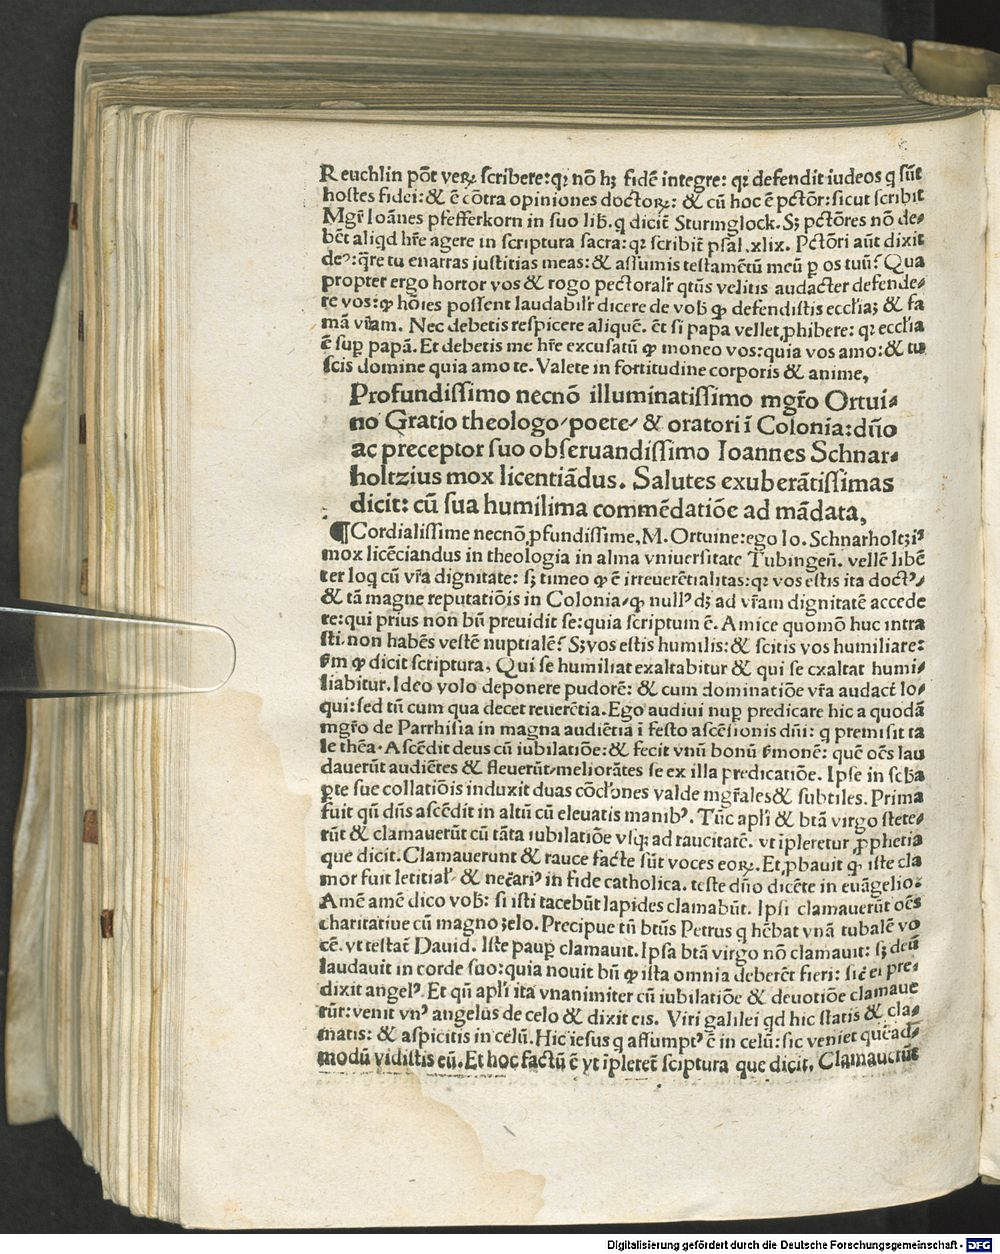 Reuchlin põt veꝝ scribere: qꝛ nõ hꝫ fidẽ integre: qꝛ defendit iudeos q sũt
hostes fidei: & ẽ cõtra opiniones doctoꝝ: & cũ hoc ẽ pctõr: sicut scribit
Mgr̃ Ioãnes pfefferkorn in suo lib. q dicit̃ Sturmglock. Sꝫ pctõres nõ de⸗
bẽt aliqd hr̃e agere in scriptura sacra: qꝛ scribit̃ psal. xlix. Pctõri aũt dixit
deꝰ: q̃re tu enarras iustitias meas: & assumis testamẽtũ meũ ꝑ os tuũ? Qua
propter ergo hortor vos & rogo pectoralr̃ qtũs velitis audacter defende⸗
re vos: ꝙ hõies possent laudabilr̃ dicere de vob ꝙ defendistis eccl'ia; & fa
mã vr̃am. Nec debetis respicere aliquẽ. ẽt si papa vellet ꝓhibere: qꝛ eccl'ia
ẽ suꝑ papã. Et debetis me hr̃e excusatũ ꝙ moneo vos: quia vos amo: & tu
scis domine quia amo te. Valete in fortitudine corporis & anime,
Profundissimo necnõ illuminatissimo mgr̃o Ortui⸗
no Gratio theologo/ poete/ & oratori ĩ Colonia: dño
ac preceptor suo obseruandissimo Ioannes Schnar⸗
holtzius mox licentiãdus. Salutes exuberãtissimas
dicit: cũ sua humilima commẽdatiõe ad mãdata,
¶Cordialissime necnõ ꝓfundissime, M. Ortuine: ego Io. Schnarholtꝫiꝰ
mox licẽciandus in theologia in alma vniuersitate Tubingeñ. vellẽ libẽ
ter loq cũ vr̃a dignitate: sꝫ timeo ꝙ ẽ irreuerẽtialitas: qꝛ vos estis ita doctꝰ/
& tã magne reputatiõis in Colonia/ ꝙ nullꝰ dꝫ ad vr̃am dignitatẽ accede
re: qui prius non bñ preuidit se: quia scriptum ẽ. Amice quomõ huc intra
sti. non habẽs vestẽ nuptialẽ? Sꝫ vos estis humilis: & scitis vos humiliare:
ẜm ꝙ dicit scriptura, Qui se humiliat exaltabitur & qui se exaltat humi⸗
liabitur. Ideo volo deponere pudorẽ: & cum dominatiõe vr̃a audact̃ lo⸗
qui: sed tñ cum qua decet reuerẽtia. Ego audiui nuꝑ predicare hic a quodã
mgr̃o de Parrhisia in magna audiẽtia ĩ festo ascẽsionis dñi: q premisit ta
le thẽa. Ascẽdit deus cũ iubilatiõe: & fecit vnũ bonũ ẜmonẽ: quẽ oẽs lau
dauerũt audiẽtes & fleuerũt/ meliorãtes se ex illa predicatiõe. Ipse in scḃa
ꝑte sue collatiõis induxit duas cõcl'ones valde mgr̃ales & subtiles. Prima
fuit qñ dñs ascẽdit in altũ cũ eleuatis manibꝰ. Tũc apl'i & btã virgo stete⸗
rũt & clamauerũt cũ tãta iubilatiõe vsqꝫ ad raucitatẽ. vt ĩpleretur ꝓphetia
que dicit. Clamauerunt & rauce facte sũt voces eoꝝ. Et ꝓbauit ꝙ iste cla
mor fuit letitial' & nec̃ariꝰ in fide catholica. teste dño dicẽte in euãgelio:
Amẽ amẽ dico vob: si isti tacebũt lapides clamabũt. Ipsi clamauerũt oẽs
charitatiue cũ magno ꝫelo. Precipue tñ btũs Petrus q hẽbat vnã tubalẽ vo
cẽ. vt testat̃ Dauid. Iste pauꝑ clamauit. Ipsa btã virgo nõ clamauit: sꝫ deũ
laudauit in corde suo: quia nouit bñ ꝙ ista omnia deberẽt fieri: sic̃ ei pre⸗
dixit angelꝰ. Et qñ apl'i ita vnanimiter cũ iubilatiõe & deuotiõe clamaue
rũt: venit vnꝰ angelus de celo & dixit eis. Viri galilei qd hic statis & cla⸗
matis: & aspicitis in celũ. Hic iesus q assumptꝰ ẽ in celũ: sic veniet quẽad⸗
modũ vidistis eũ. Et hoc factũ ẽ vt ĩpleret̃ sciptura que dicit, Clamauerũt
Digitalisierung gefördert durch die Deutsche Forschungsgemeinschaft - DFG